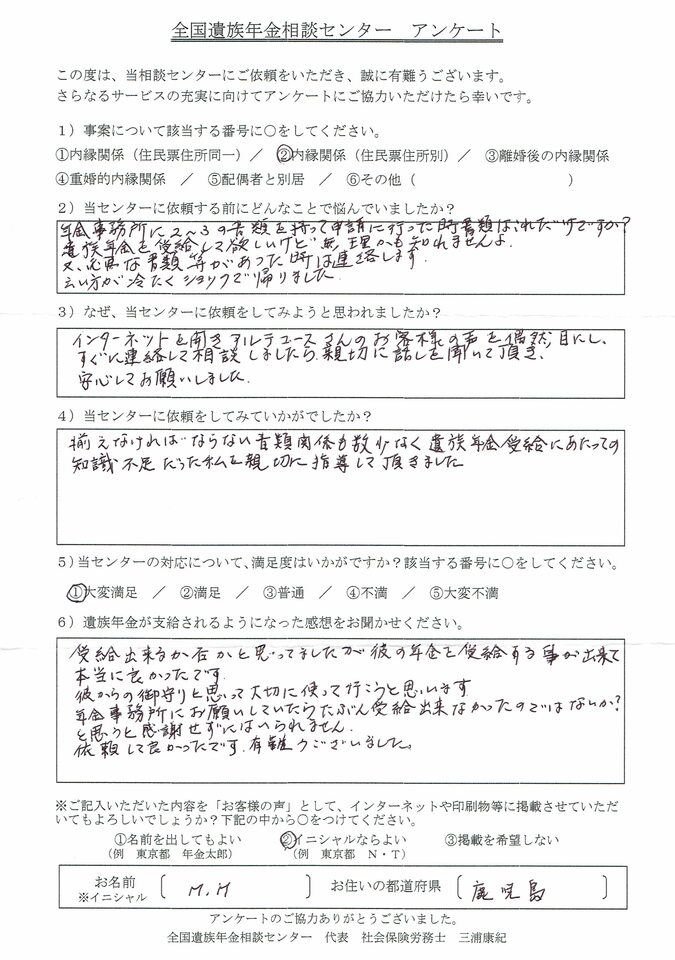 全国遺族年金相談センター　アンケート
この度は、当相談センターにご依頼をいただき、誠に有難うございます。
さらなるサービスの充実に向けてアンケートにご協力いただけたら幸いです。
1）事案について該当する番号に○をしてください。
①内縁関係（住民票住所同一）／　②内縁関係（住民票住所別）／　③離婚後の内縁関係
④重婚的内縁関係　／　⑤配偶者と別居　／　⑥その他（　　　　　　　　　　）
2）当センターに依頼する前にどんなことで悩んでいましたか？
年金事務所に2～3の書類を持って申請に行った時書類はこれだけですか?
遺族年金を受給して欲しいけど無理かも知れませんよ.
又、必要な書類等があった時は連絡します.
云い方が冷たくショックで帰りました
3）なぜ、当センターに依頼をしてみようと思われましたか？
インターネットを開きアルテユースさんのお客様の声を偶然目にし、
すぐに連絡して相談しましたら、親切に話しを聞いて頂き、
安心してお願いしました.
4）当センターに依頼をしてみていかがでしたか？
揃えなければならない書類関係も数少なく遺族年金受給にあたっての
知識不足だった私を親切に指導して頂きました
5）当センターの対応について、満足度はいかがですか？該当する番号に○をしてください。
①大変満足　／　②満足　／　③普通　／　④不満　／　⑤大変不満
6）遺族年金が支給されるようになった感想をお聞かせください。
受給出来るか否かと思ってましたが彼の年金を受給する事が出来て
本当に良かったです.
彼からの御守りと思って大切に使って行こうと思います
年金事務所にお願いしていたらたぶん受給出来なかったのではないか?
と思うと感謝せずにはいられません.
依頼して良かったです.有難うございました。
※ご記入いただいた内容を「お客様の声」として、インターネットや印刷物等に掲載させていただ
いてもよろしいでしょうか？下記の中から○をつけてください。
①名前を出してもよい　②イニシャルならよい　③掲載を希望しない
（例　東京都　年金太郎）　（例　東京都　N・T）
お名前　〔　M.M　〕　お住いの都道府県　〔　鹿児島　〕
※イニシャル
アンケートのご協力ありがとうございました。
全国遺族年金相談センター　代表　社会保険労務士　三浦康紀